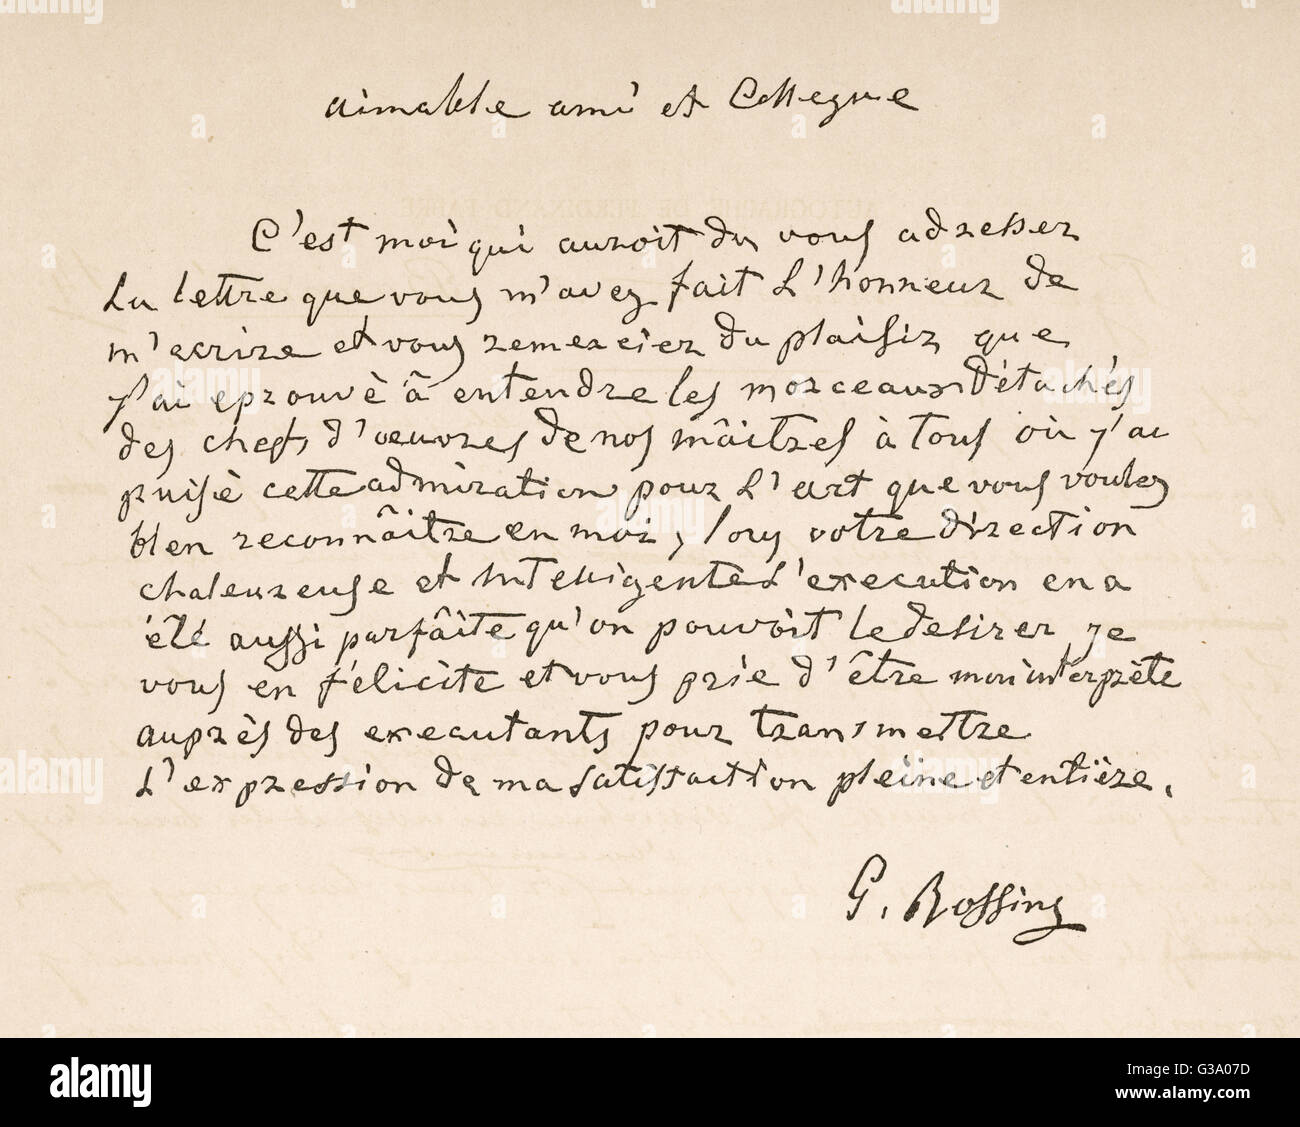 aimable ami et Collegue
C'est moi qui auroit du vous adresser
La lettre que vous m'avez fait L'honneur de
m'ecrire et vous remercier du plaisir que
j'ai eprouvè â entendre les morceaux Détachés
des chefs d'œuvres de nos mâitres à tous où j'ai
puisè cette admiration pour L'art que vous voulez
bien reconnâitre en moi, lors votre direction
chaleureuse et Intelligente L'execution en a
été aussi parfâite qu'on pouvoit le desirer je
vous en félicite et vous prie d'être mon interprète
auprès des executants pour transmettre
L'expression de ma satisfaction pleine et entière.
G. Rossini
AUTOGRAPHE DE FERDINAND FABRE
alamy
Image ID: G3A07D
www.alamy.com